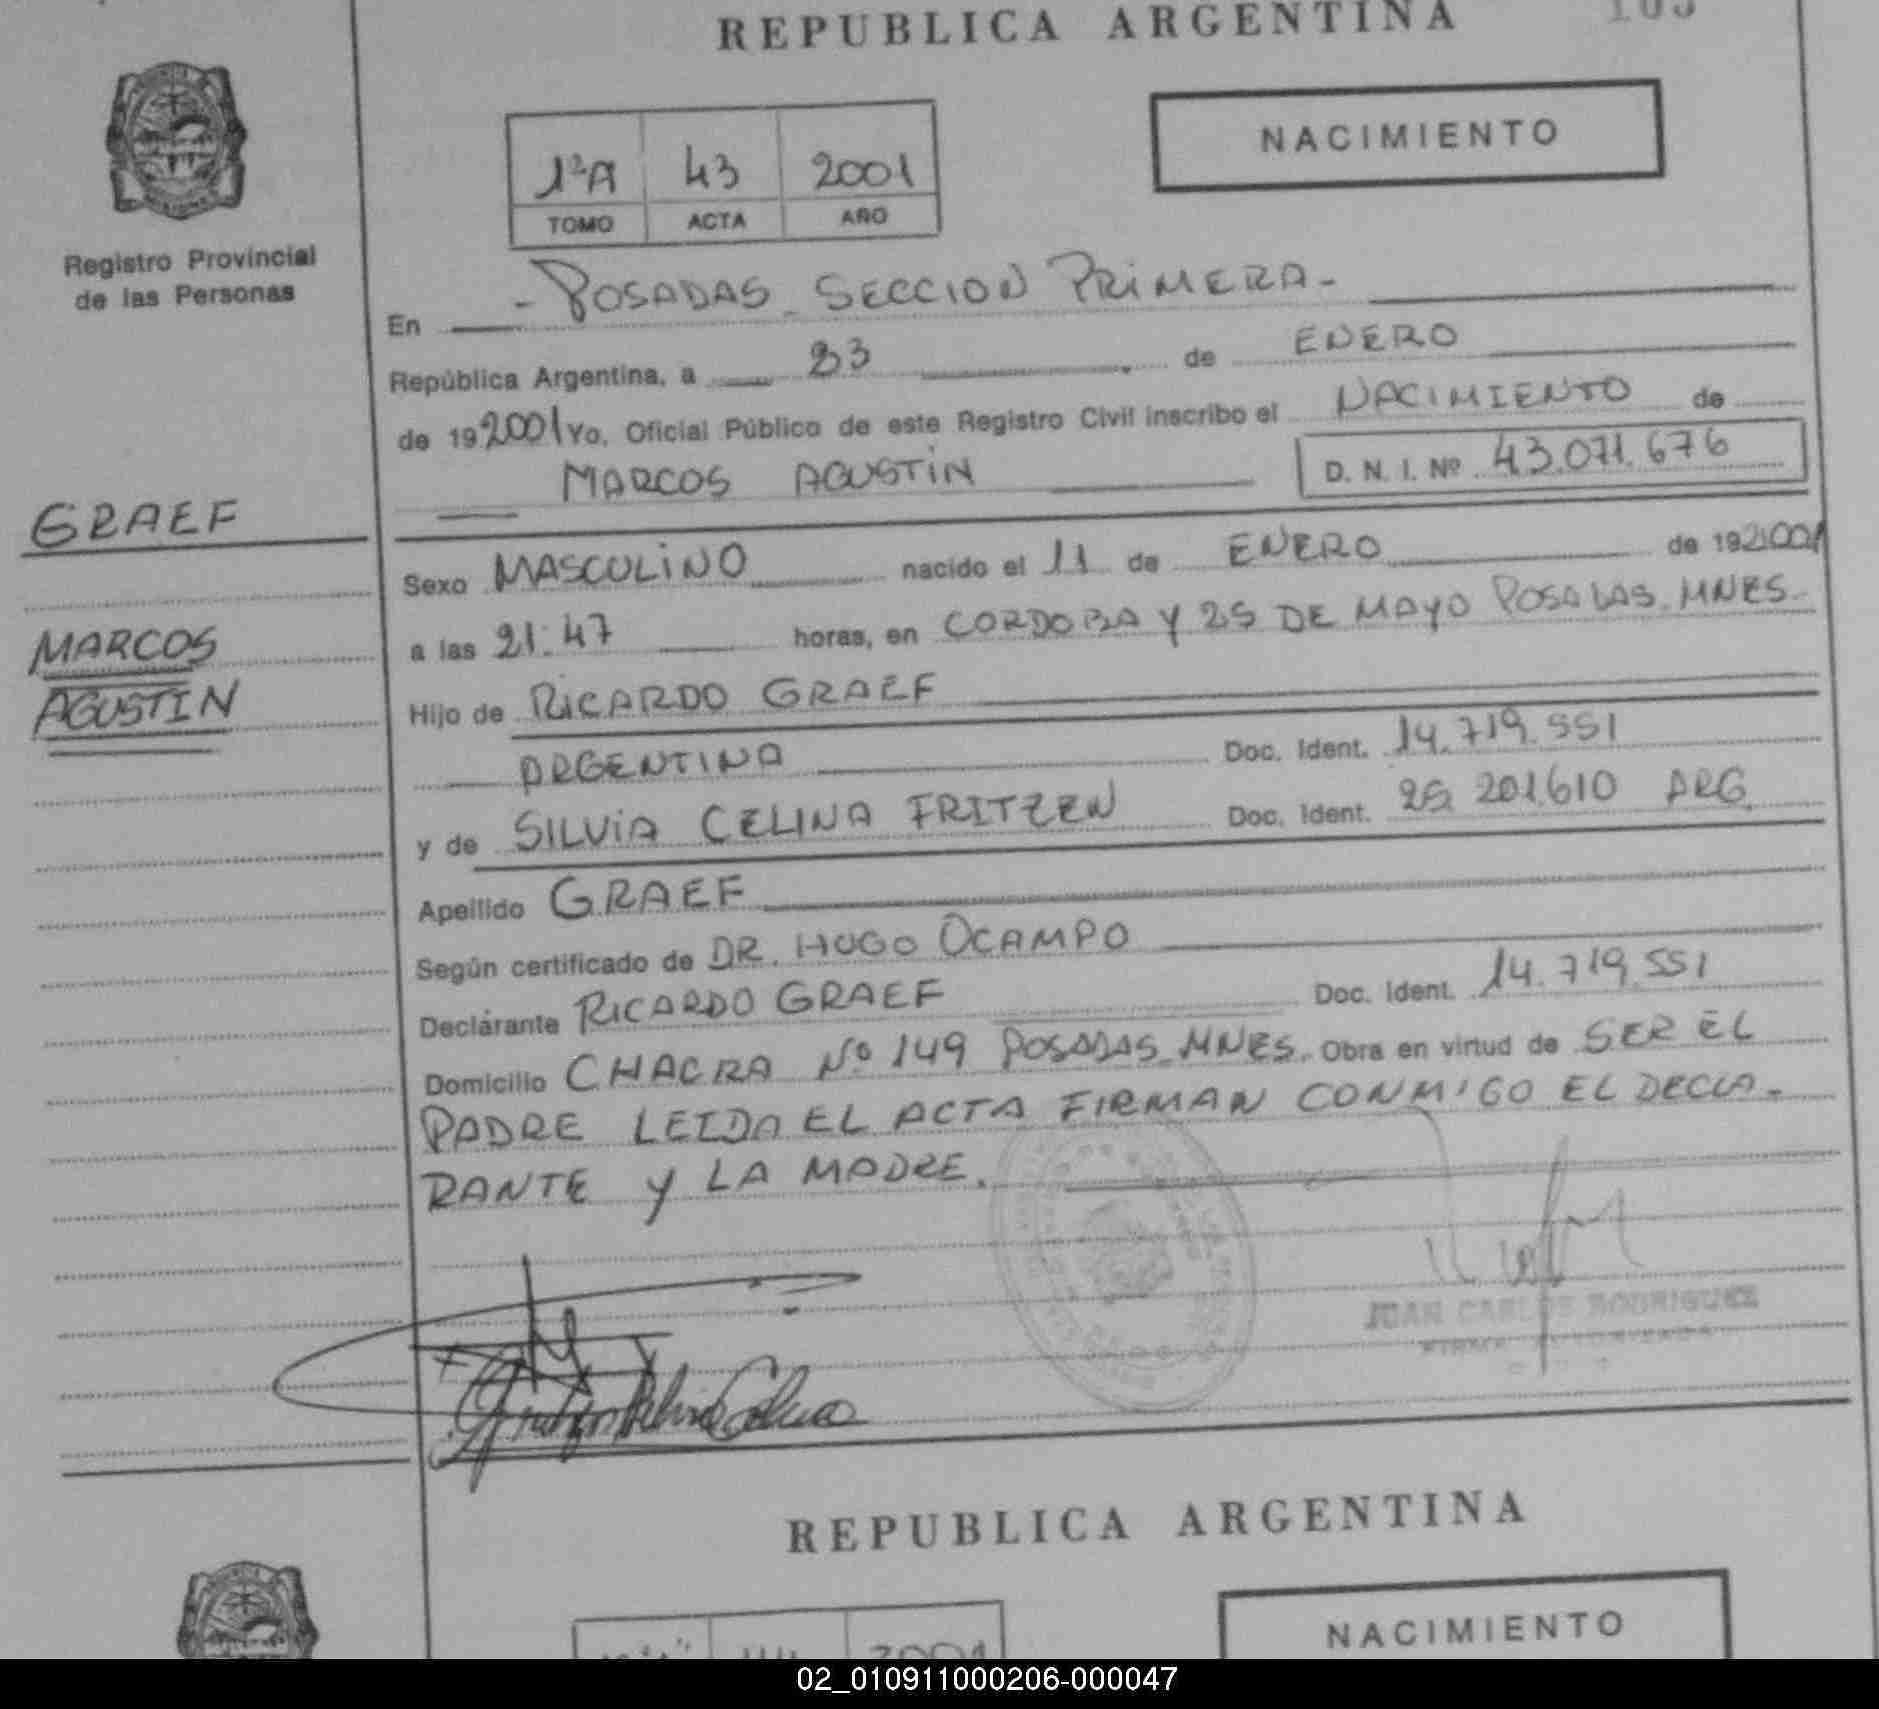 REPUBLICA ARGENTINA
NACIMIENTO
1ªA 43 2001
TOMO ACTA AÑO
Registro Provincial
de las Personas
En - POSADAS - SECCION PRIMERA -
República Argentina, a 23 de ENERO
de 192001 Yo, Oficial Público de este Registro Civil inscribo el NACIMIENTO de
MARCOS AGUSTIN D. N. I. Nº 43.071.676
GRAEF
MARCOS
AGUSTIN
Sexo MASCULINO nacido el 11 de ENERO de 192001
a las 21:47 horas, en CORDOBA Y 25 DE MAYO POSADAS. MNES.
Hijo de RICARDO GRAEF
ARGENTINA Doc. Ident. 14.719.551
y de SILVIA CELINA FRITZEN Doc. Ident. 25.201.610 ARG.
Apellido GRAEF
Según certificado de DR. HUGO OCAMPO
Declarante RICARDO GRAEF Doc. Ident. 14.719.551
Domicilio CHACRA Nº 149 POSADAS. MNES. Obra en virtud de SER EL
PADRE LEIDA EL ACTA FIRMAN CONMIGO EL DECLA-
RANTE Y LA MADRE.
JUAN CARLOS RODRIGUEZ
FIRMA AUTORIZADA
REPUBLICA ARGENTINA
NACIMIENTO
2001
02_010911000206-000047